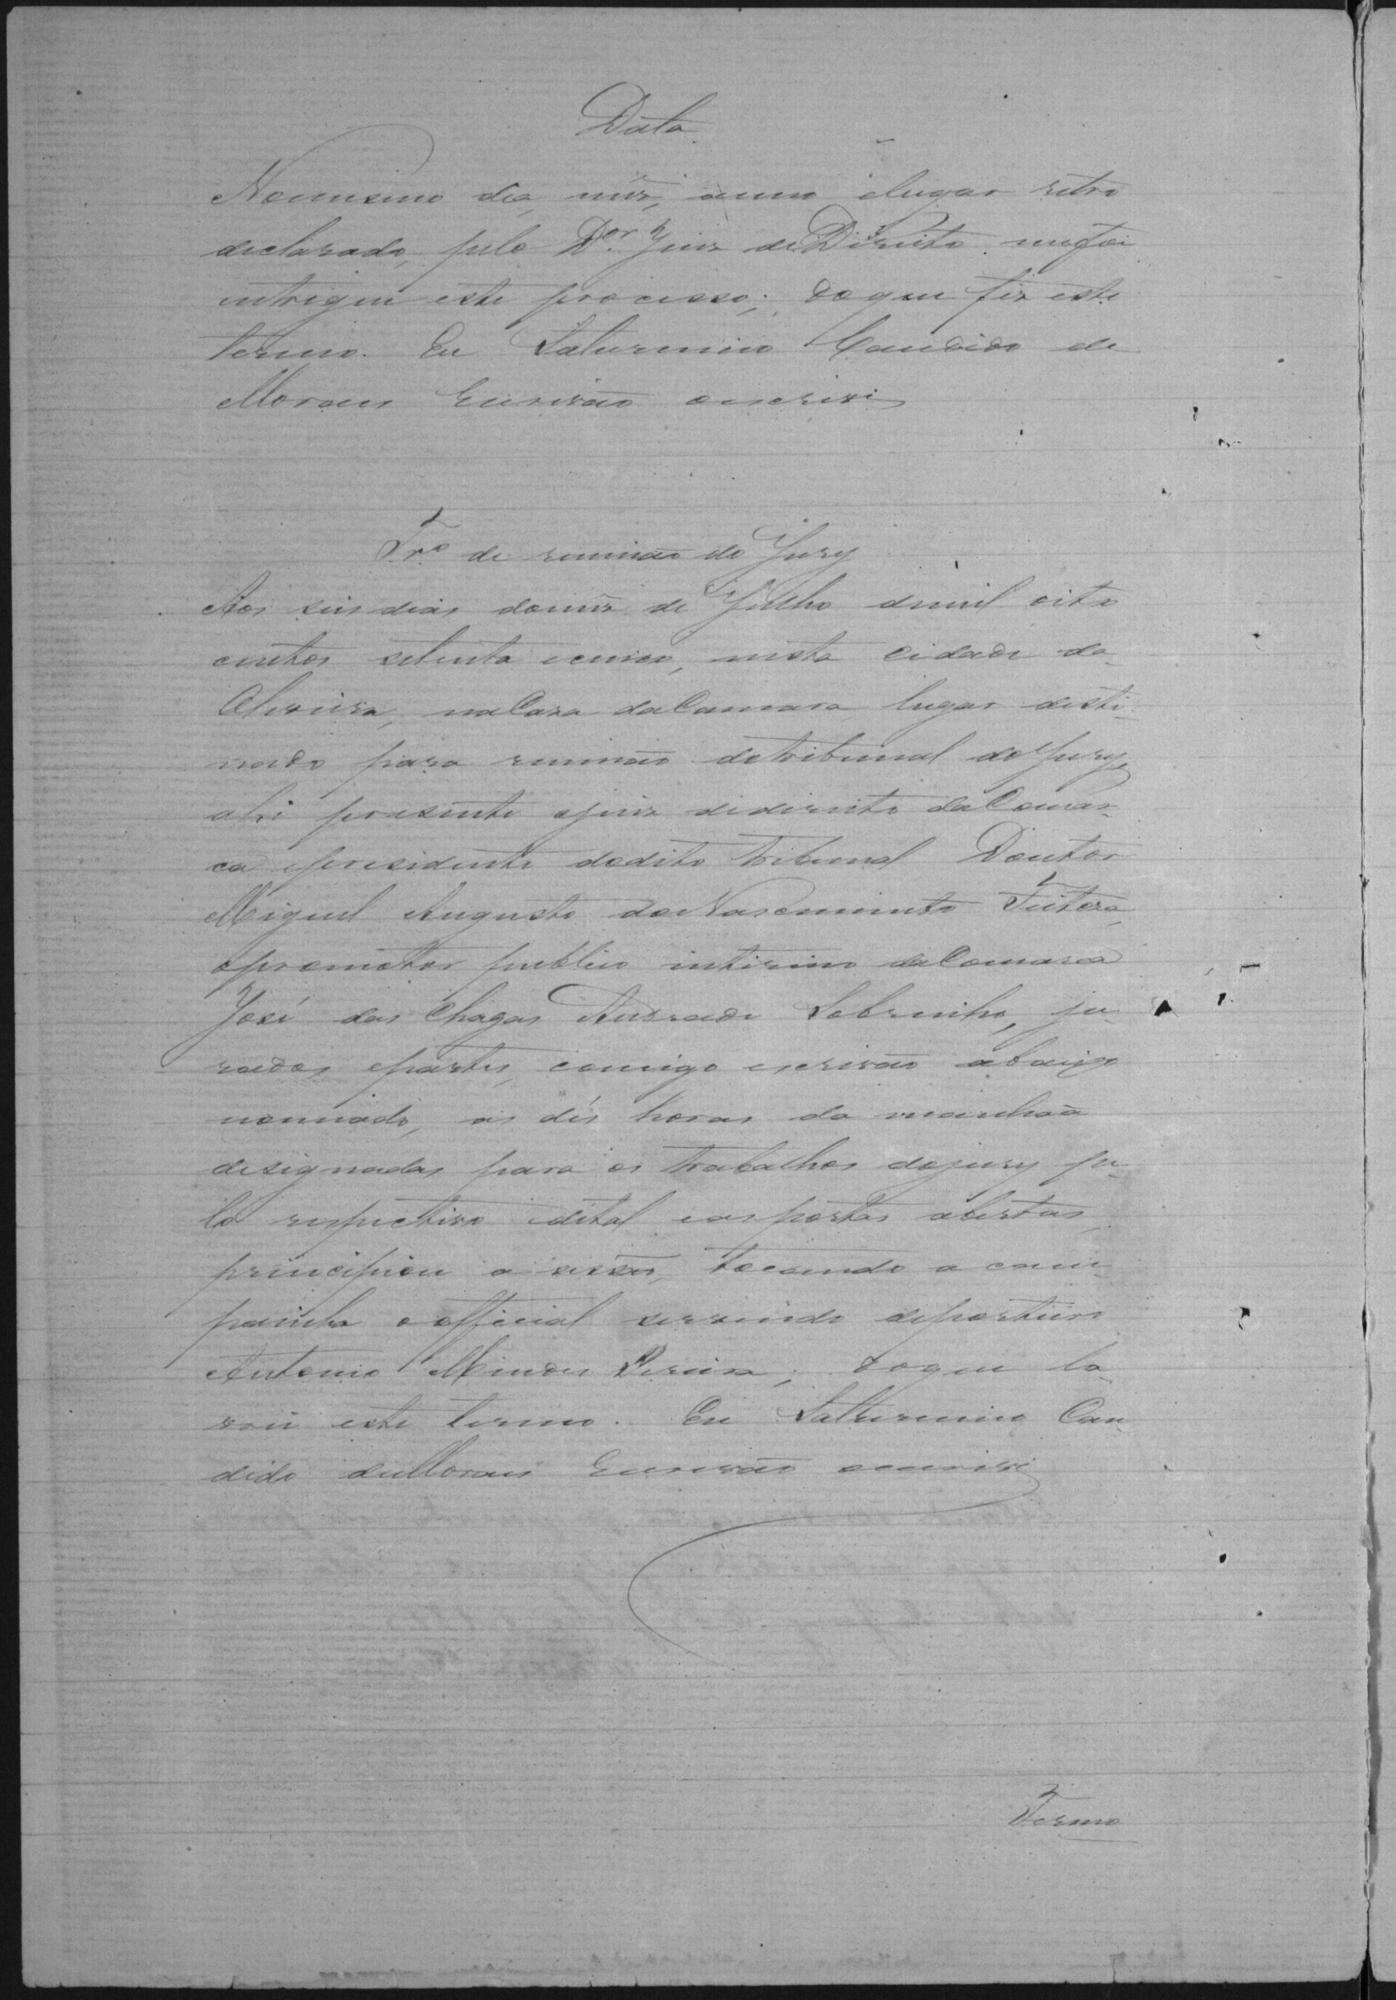 Data
No mesmo dia, mez, anno elugar retro
declarado, pelo Dor. Juiz deDireito mefoi
entregue este processo; do que fiz este
termo. Eu Saturnino Candido de
Moraes Escrivão oescrevi
Tro. de reunião do Jury
Aos seis dias domez de Julho demil oito
centos setenta ecinco, nesta cidade da
Oliveira, naCaza daCamara lugar desti-
nado para reunião dotribunal doJury,
ahi presente ojuiz dedireito daComar-
ca epresidente dodito tribunal Doutor
Miguel Augusto doNascimento Feitosa,
opromotor publico interino daComarca
José das Chagas Andrade Sobrinho, ju-
rados, epartes, comigo escrivão abaixo
nomiado, as dés horas da manhaã
designadas para os trabalhos dojury pe-
lo respectivo edital eas portas abertas,
principiou a sessão, tocando a cam-
painha oofficial servindo deporteiro
Antonio Mendes Pereira; doque la-
vrei este termo. Eu Satturnino Can-
dido deMoraes Escrivão oescrevi
Termo